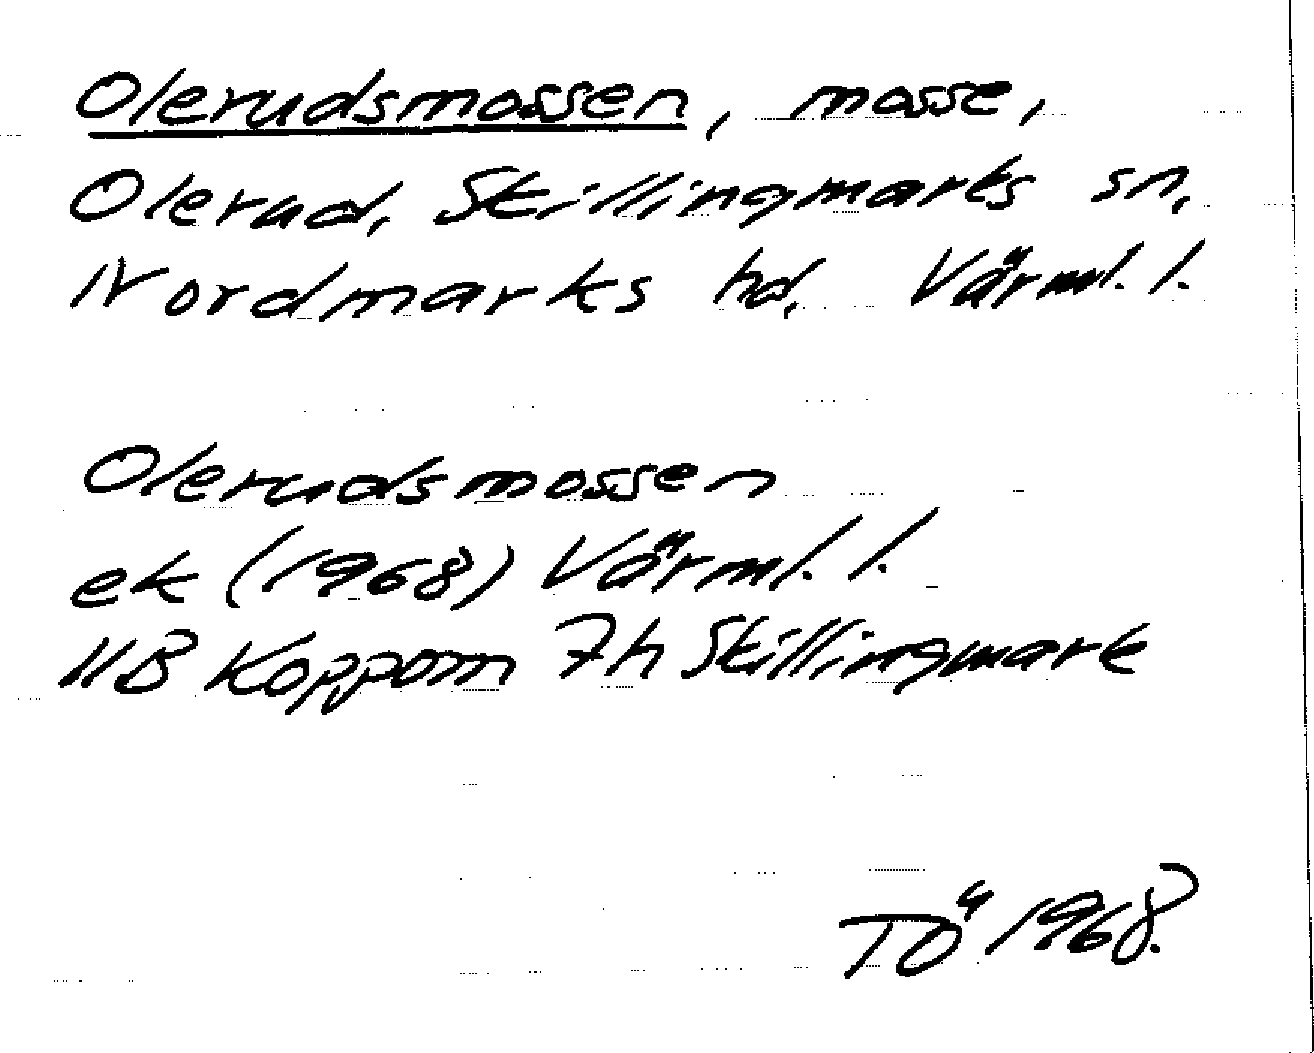 Olerudsmossen, mosse,
Olerud, Skillingmarks sn,
Nordmarks hd, Värml. l.
Olerudsmossen
ek (1968) Värml. l.
11B Koppom 7h Skillingmark
TÖ 1968.